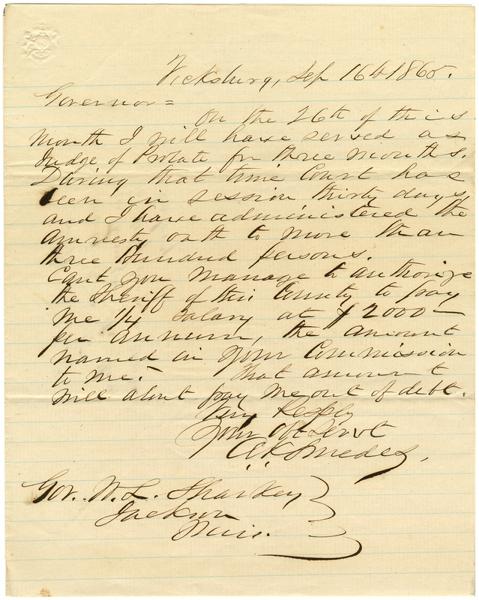 Vicksburg, Sep 16th 1865.
Governor=
On the 26th of this
month I will have served as
Judge of Probate for three months.
During that time Court has
been in session thirty days,
and I have administered the
amnesty oath to more than
three hundred persons.
Can't you manage to authorize
the Sheriff of this County to pay
me 1/4 salary at $2000—
per annum, the amount
named in your Commission
to me.— That amount
will about pay me out of debt.
Very Resply
Your Obt Servt
C. Smedes,
Gov. W. L. Sharkey
Jackson
Miss.